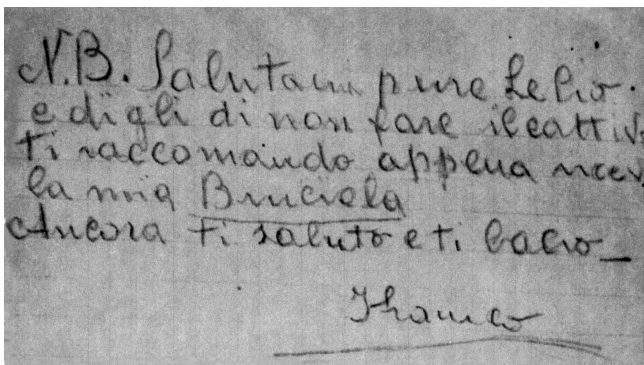 N.B. Salutami pure Lelio.
e digli di non fare il cattiv
ti raccomando appena ricev
la mia Bruciela
Ancora ti saluto e ti bacio_
Franco